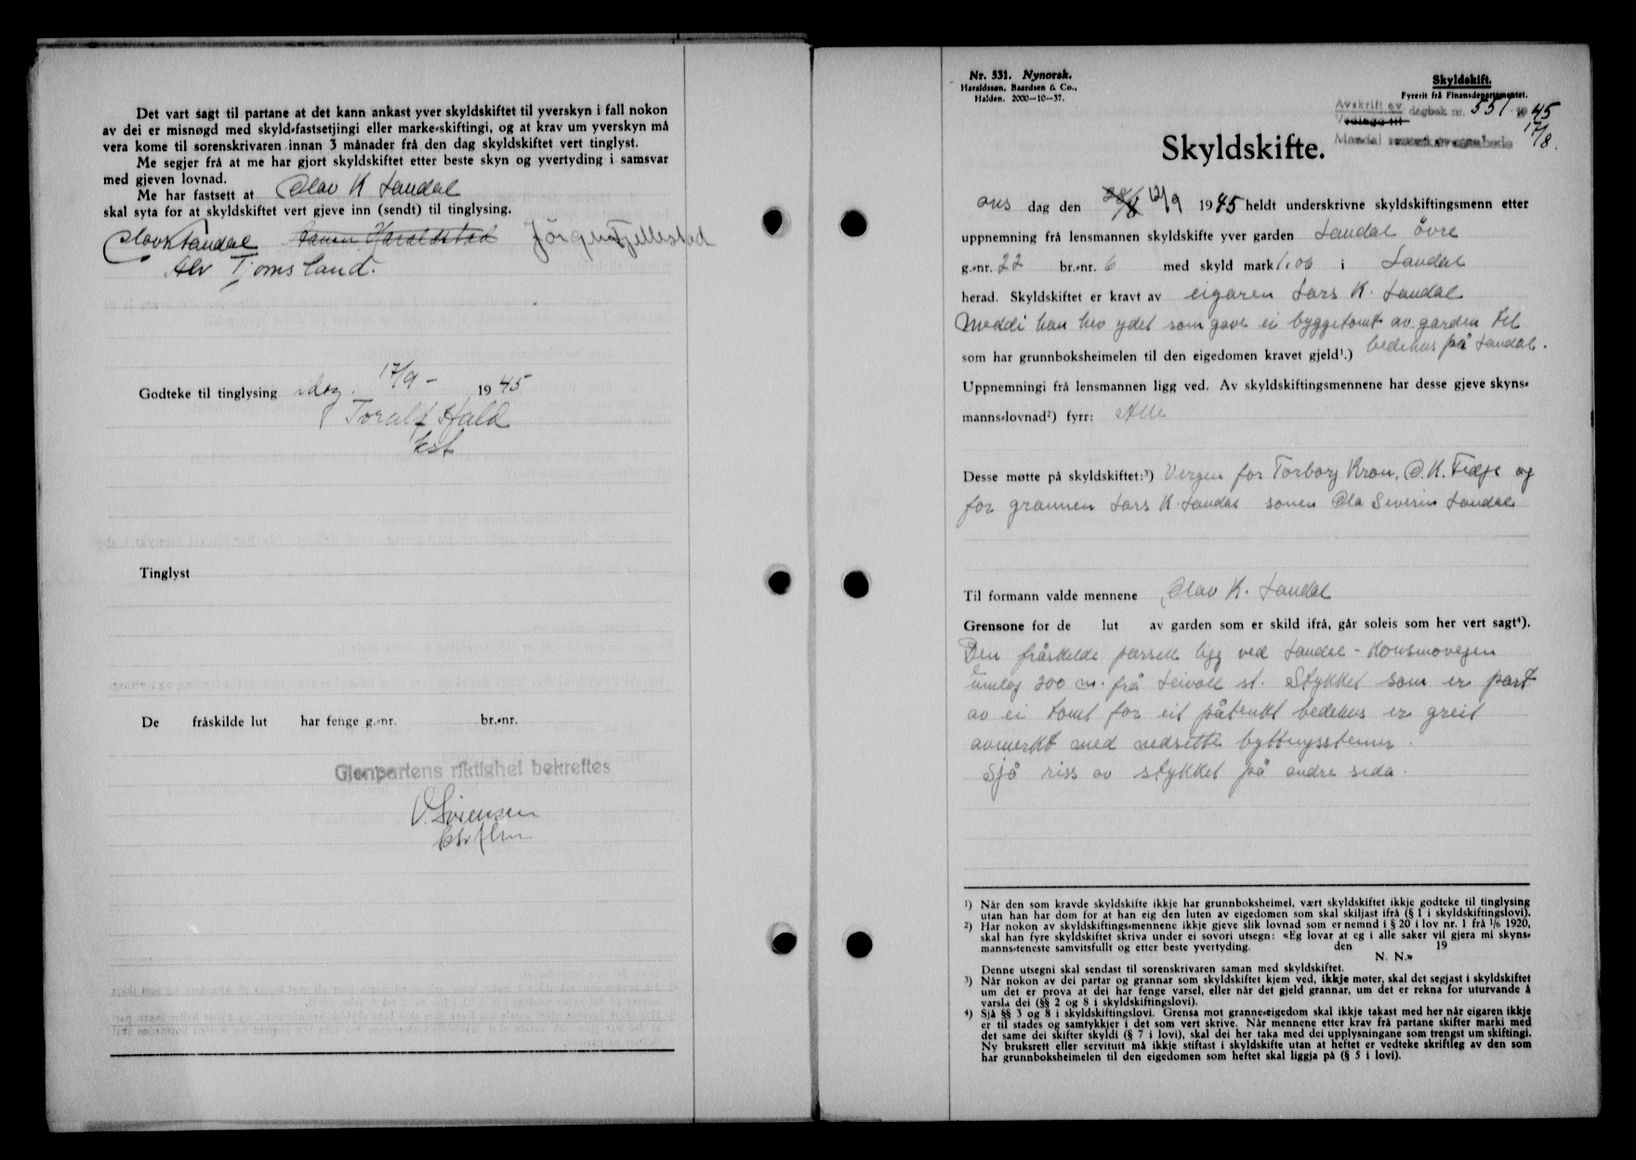 Det vart sagt til partane at det kann ankast yver skyldskiftet til yverskyn i fall nokon
av dei er misnøgd med skyld-fastsetjingi eller marke-skiftingi, og at krav um yverskyn må
vera kome til sorenskrivaren innan 3 månader frå den dag skyldskiftet vert tinglyst.
Me segjer frå at me har gjort skyldskiftet etter beste skyn og yvertyding i samsvar
med gjeven lovnad.
Me har fastsett at Olav K Laudal
skal syta for at skyldskiftet vert gjeve inn (sendt) til tinglysing.
Olav K Laudal Haraldstad Jörgen Fjellestad
Alv Tjomsland.
Godteke til tinglysing idag. 17/9 - 1945
Toralf Hald
Tinglyst
De fråskilde lut har fenge g.-nr. br.-nr.
Gjenpartens riktighet bekreftes
V. Sørensen
Nr. 531. Nynorsk.
Haraldssøn, Baardsen & Co.,
Halden. 2000-10-37.
Skyldskift.
Fyrerit frå Finansdepartementet.
Avskrift av dagbok nr. 551 1945
Mandal 17/8.
Skyldskifte.
ons dag den 28/8 12/9 1945 heldt underskrivne skyldskiftingsmenn etter
uppnemning frå lensmannen skyldskifte yver garden Laudal övre
g.-nr. 22 br.-nr. 6 med skyld mark 1,06 i Laudal
herad. Skyldskiftet er kravt av eigaren Lars K. Laudal
Meddi han hev ydet som gave ei byggetomt av garden til
bedehus på Laudal.
som har grunnboksheimelen til den eigedomen kravet gjeld¹.)
Uppnemningi frå lensmannen ligg ved. Av skyldskiftingsmennene har desse gjeve skyns-
manns-lovnad²) fyrr: Alle
Desse møtte på skyldskiftet:³) Vergen for Torborg Kron, O. K. Fidje og
for grannen Lars K. Laudal sonen Ola Severin Laudal
Til formann valde mennene Olav K. Laudal
Grensone for de lut av garden som er skild ifrå, går soleis som her vert sagt⁴).
Den fråskilde parsell ligg ved Laudal - Konsmovegen
umlag 200 m. frå Leivoll st. Stykket som er part
av ei tomt for eit påtenkt bedehus er greit
avmerkt med nedsette byttingssteinar.
Sjå riss av stykket på andre sida.
¹) Når den som kravde skyldskifte ikkje har grunnboksheimel, vært skyldskiftet ikkje godteke til tinglysing
utan han har dom for at han eig den luten av eigedomen som skal skiljast ifrå (§ 1 i skyldskiftingslovi).
²) Har nokon av skyldskiftings-mennene ikkje gjeve slik lovnad som er nemnd i § 20 i lov nr. 1 frå 1/6 1920,
skal han fyre skyldskiftet skriva under ei sovori utsegn: «Eg lovar at eg i alle saker vil gjera mi skyns-
manns-teneste samvitsfullt og etter beste yvertyding. den 19
N. N.»
Denne utsegni skal sendast til sorenskrivaren saman med skyldskiftet.
³) Når nokon av dei partar og grannar som skyldskiftet kjem ved, ikkje møter, skal det segjast i skyldskiftet
um det er prova at dei har fenge varsel, eller når det gjeld grannar, um det er rekna for uturvande å
varsla dei (§§ 2 og 8 i skyldskiftingslovi).
⁴) Sjå §§ 3 og 8 i skyldskiftingslovi. Grensa mot granne-eigedom skal ikkje takast med her når eigaren ikkje
er til stades og samtykkjer i det som vert skrive. Når mennene etter krav frå partane skifter marki med
det same dei skifter skyldi (§ 7 i lovi), skal dei her taka med dei upplysningane som trengst um skiftingi.
Ny bruksrett eller servitutt må ikkje stiftast i skyldskifte utan at heftet er vedteke skriftleg av den som
har grunnboksheimelen til den eigedomen som heftet skal liggja på (§ 5 i lovi).